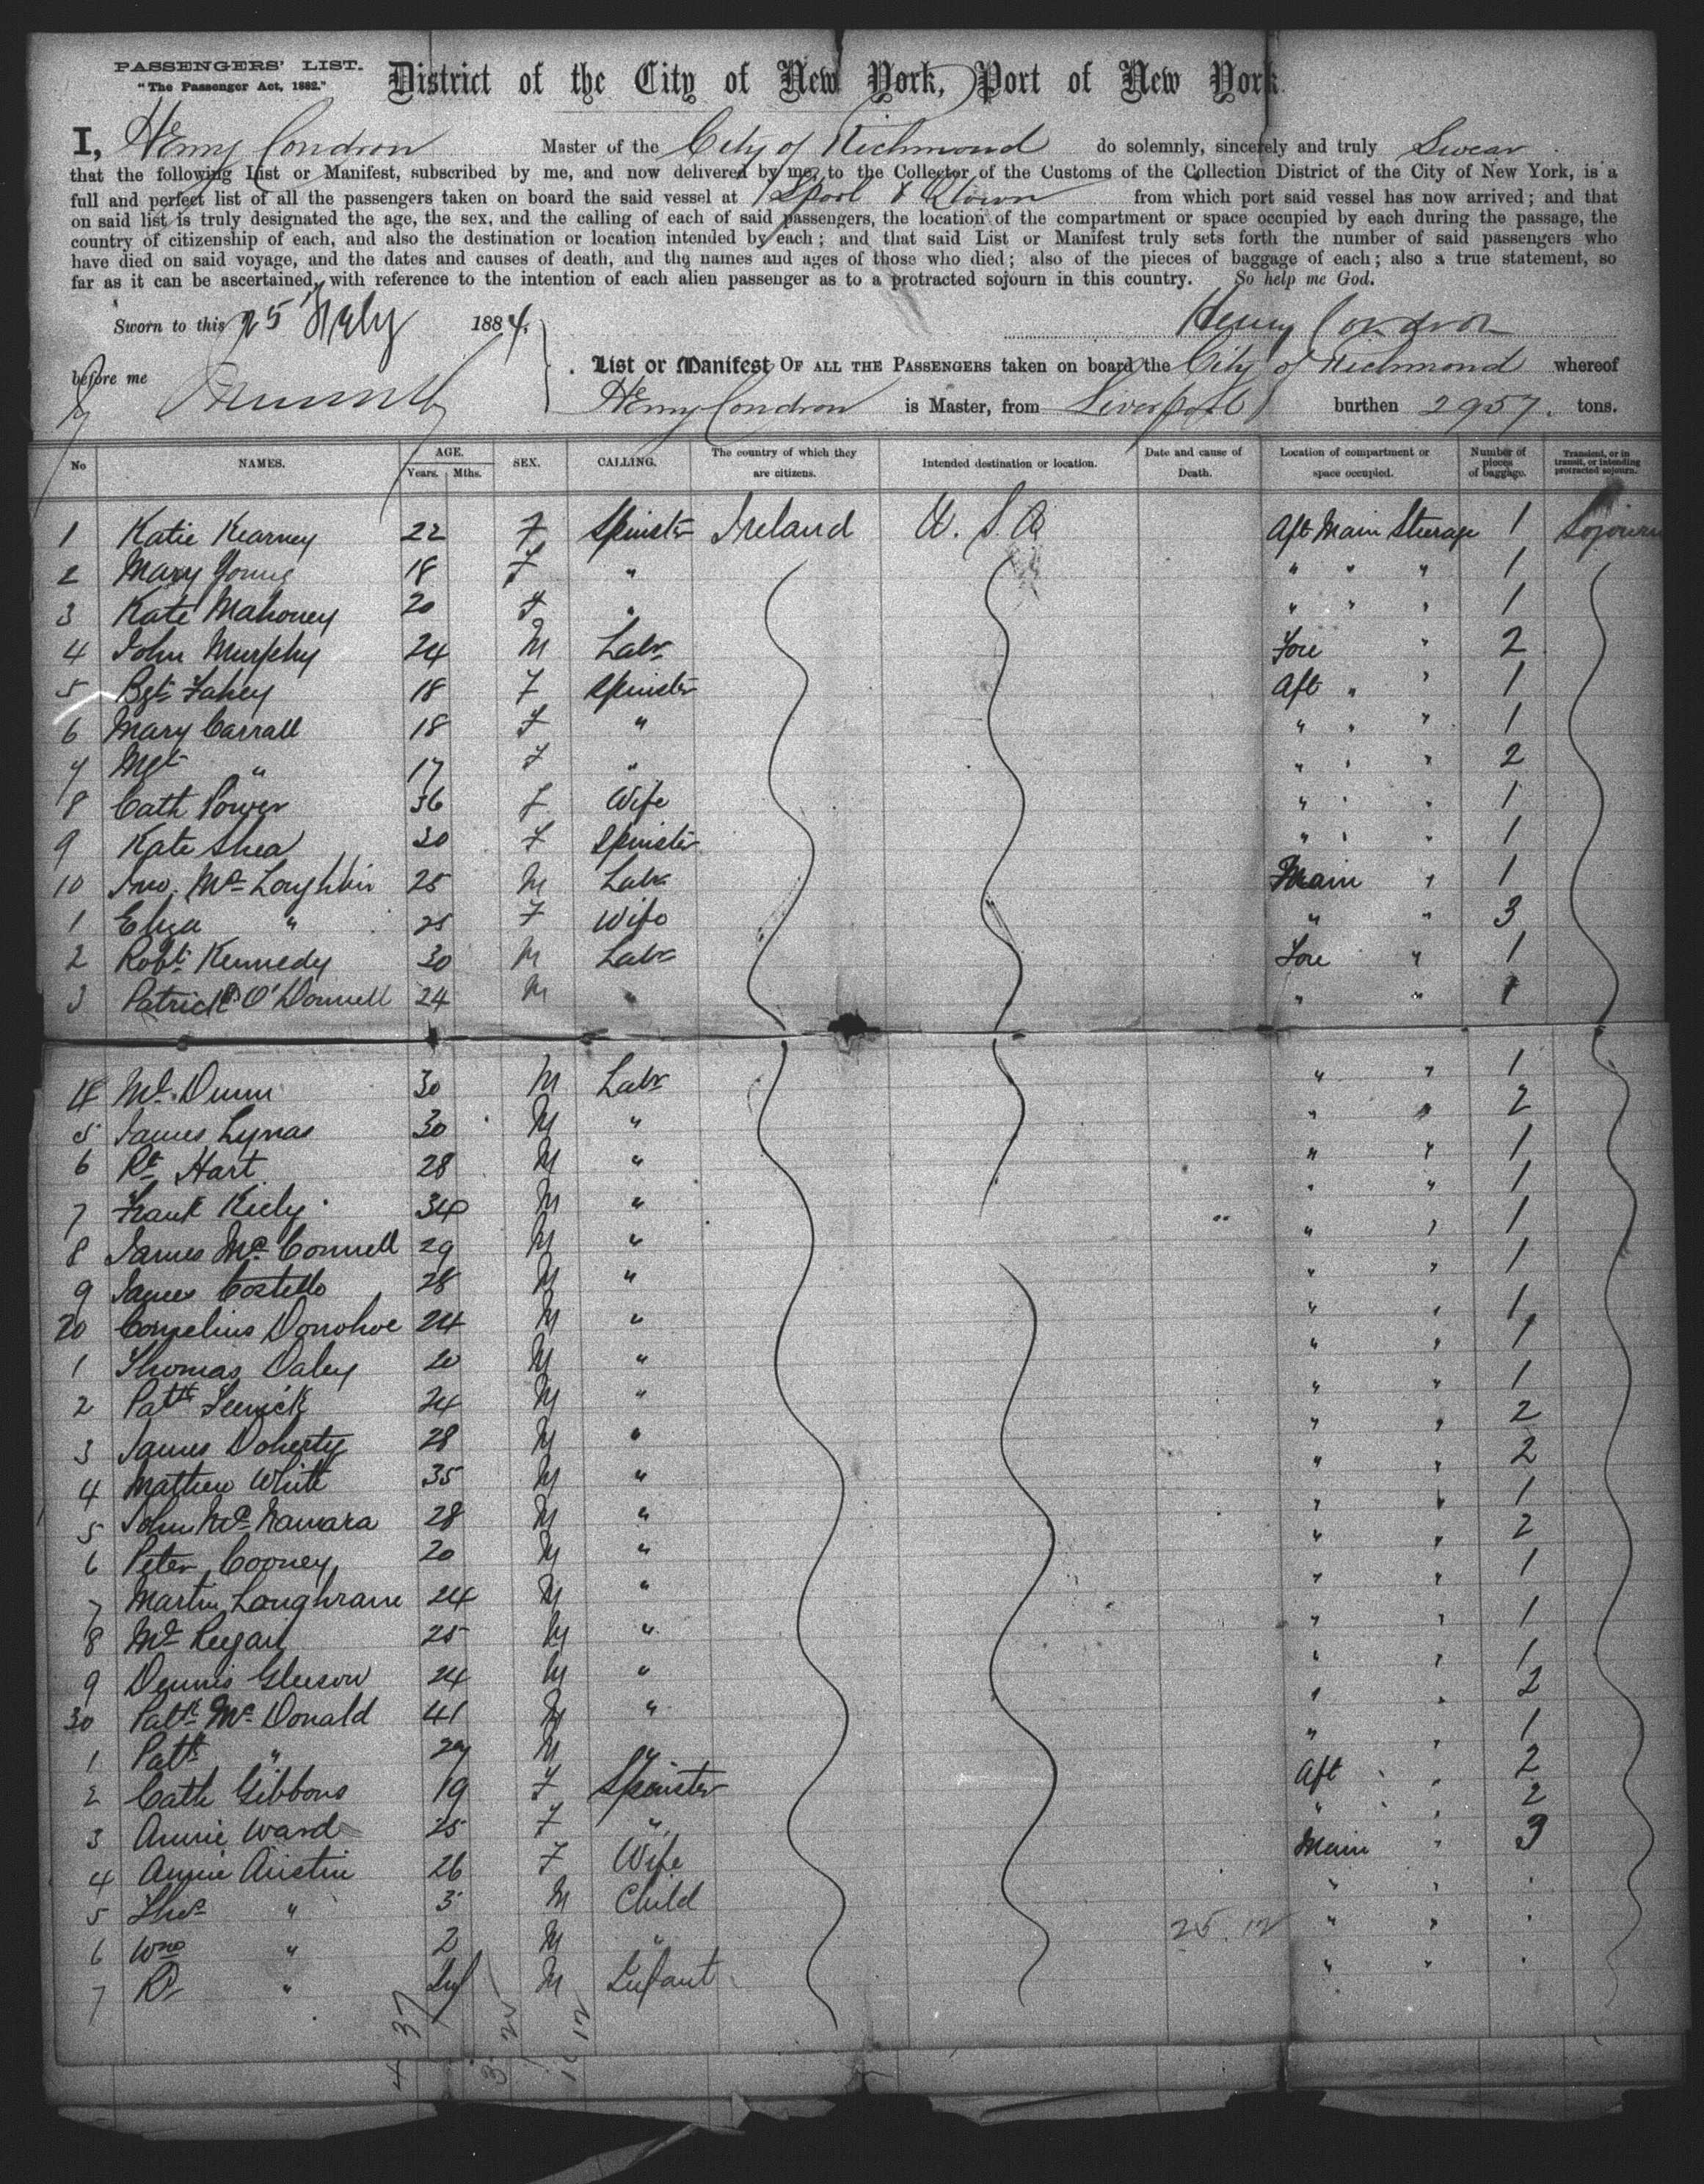 PASSENGERS' LIST.
"The Passenger Act, 1882."
District of the City of New York, Port of New York
I, Henry Condron Master of the City of Richmond do solemnly, sincerely and truly Swear
that the following List or Manifest, subscribed by me, and now delivered by me, to the Collector of the Customs of the Collection District of the City of New York, is a
full and perfect list of all the passengers taken on board the said vessel at L'pool & Qtown from which port said vessel has now arrived; and that
on said list is truly designated the age, the sex, and the calling of each of said passengers, the location of the compartment or space occupied by each during the passage, the
country of citizenship of each, and also the destination or location intended by each; and that said List or Manifest truly sets forth the number of said passengers who
have died on said voyage, and the dates and causes of death, and the names and ages of those who died; also of the pieces of baggage of each; also a true statement, so
far as it can be ascertained, with reference to the intention of each alien passenger as to a protracted sojourn in this country. So help me God.
Sworn to this 25 1884. Henry Condron
before me
List or Manifest OF ALL THE PASSENGERS taken on board the City of Richmond whereof
Henry Condron is Master, from Liverpool burthen 2957. tons.
No NAMES. AGE. Years. Mths. SEX. CALLING. The country of which they are citizens. Intended destination or location. Date and cause of Death. Location of compartment or space occupied. Number of pieces of baggage. Transient, or in transit, or intending protracted sojourn.
1 Katie Kearney 22 F Spinster Ireland U. S. A Aft Main Sterage 1 Sojourn
2 Mary Young 18 F " " " " 1
3 Kate Mahoney 20 F " " " " 1
4 John Murphy 24 M Labr Fore " 2
5 Bgt Fahey 18 F Spinster Aft " " 1
6 Mary Carrall 18 F " " " " 1
7 Mgt " 17 F " " " " 2
8 Cath Power 36 F Wife " " " 1
9 Kate Shea 30 F Spinster " " " 1
10 Jno. Mc Loughlin 25 M Labr Main " 1
1 Eliza " 25 F Wife " " 3
2 Robt Kennedy 30 M Labr Fore " 1
3 Patrick O'Donnell 24 M " " " 1
14 Ml. Dunn 30 M Labr " " 1
5 James Lynas 30 M " " " 2
6 Rt Hart 28 M " " " 1
7 Frank Kiely 34 M " " " 1
8 James Mc Connell 29 M " " " 1
9 James Costello 28 M " " " 1
20 Cornelius Donohoe 24 M " " " 1
1 Thomas Daley 20 M " " " 1
2 Patk 24 M " " " 1
3 James Doherty 28 M " " " 2
4 Mathew White 35 M " " " 2
5 John Mc Namara 28 M " " " 1
6 Peter Cooney 20 M " " " 2
7 Martin Loughrane 24 M " " " 1
8 Ml Regan 25 M " " " 1
9 Dennis Gleeson 24 M " " " 1
30 Patk Mc Donald 41 M " " " 2
1 Patk " 27 M " " " 1
2 Cath Gibbons 19 F Spinster Aft " " 2
3 Annie Ward 25 F " " " " 2
4 Annie Austin 26 F Wife Main " 3
5 Thos " 3 M Child " "
6 Wm " 2 M " 25.12 " "
7 Rt " Inf M Infant " "
37